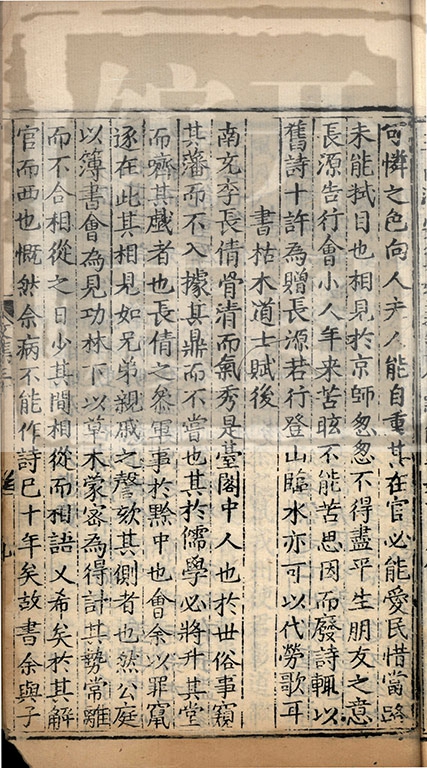 可憐之色向人夫人能自重其在官必能愛民惜當路
未能拭目也相見於京師怱怱不得盡平生朋友之意
長源告行會小人年来苦眩不能苦思因而廢詩輒以
舊詩十許為贈長源若行登山臨水亦可以代勞歌耳
書枯木道士賦後
南充李長倩骨清而氣秀是臺閣中人也於世俗事窺
其藩而不入據其鼎而不嘗也其於儒學必將升其堂
而嚌其胾者也長倩之叅軍事於黔中也會余以罪竄
逐在此其相見如兄弟親戚之謦欬其側者也然公庭
以簿書會為見功林下以草木蒙密為得計其勢常離
而不合相從之日少其間相從而相語又希矣於其解
官而西也慨然余病不能作詩巳十年矣故書余與子